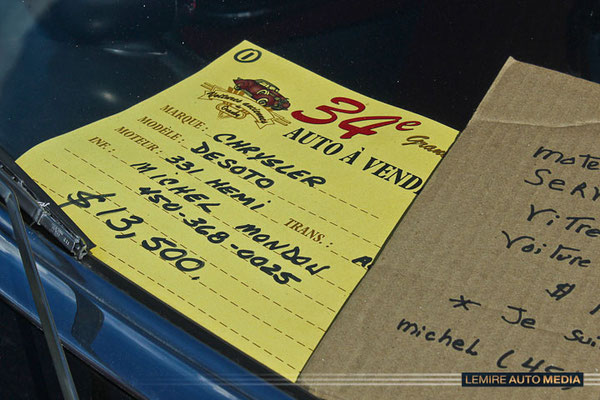 1
34e Gran
Voitures anciennes
AUTO À VEND
MARQUE : CHRYSLER
MODÈLE : DESOTO
MOTEUR : 331 HEMI TRANS. : A
INF. : MICHEL MONDOU
450-368-0025
$13,500.
mote
SER
Vitre
Voiture
$ 1
* Je sui
michel (45
LEMIRE AUTO MEDIA